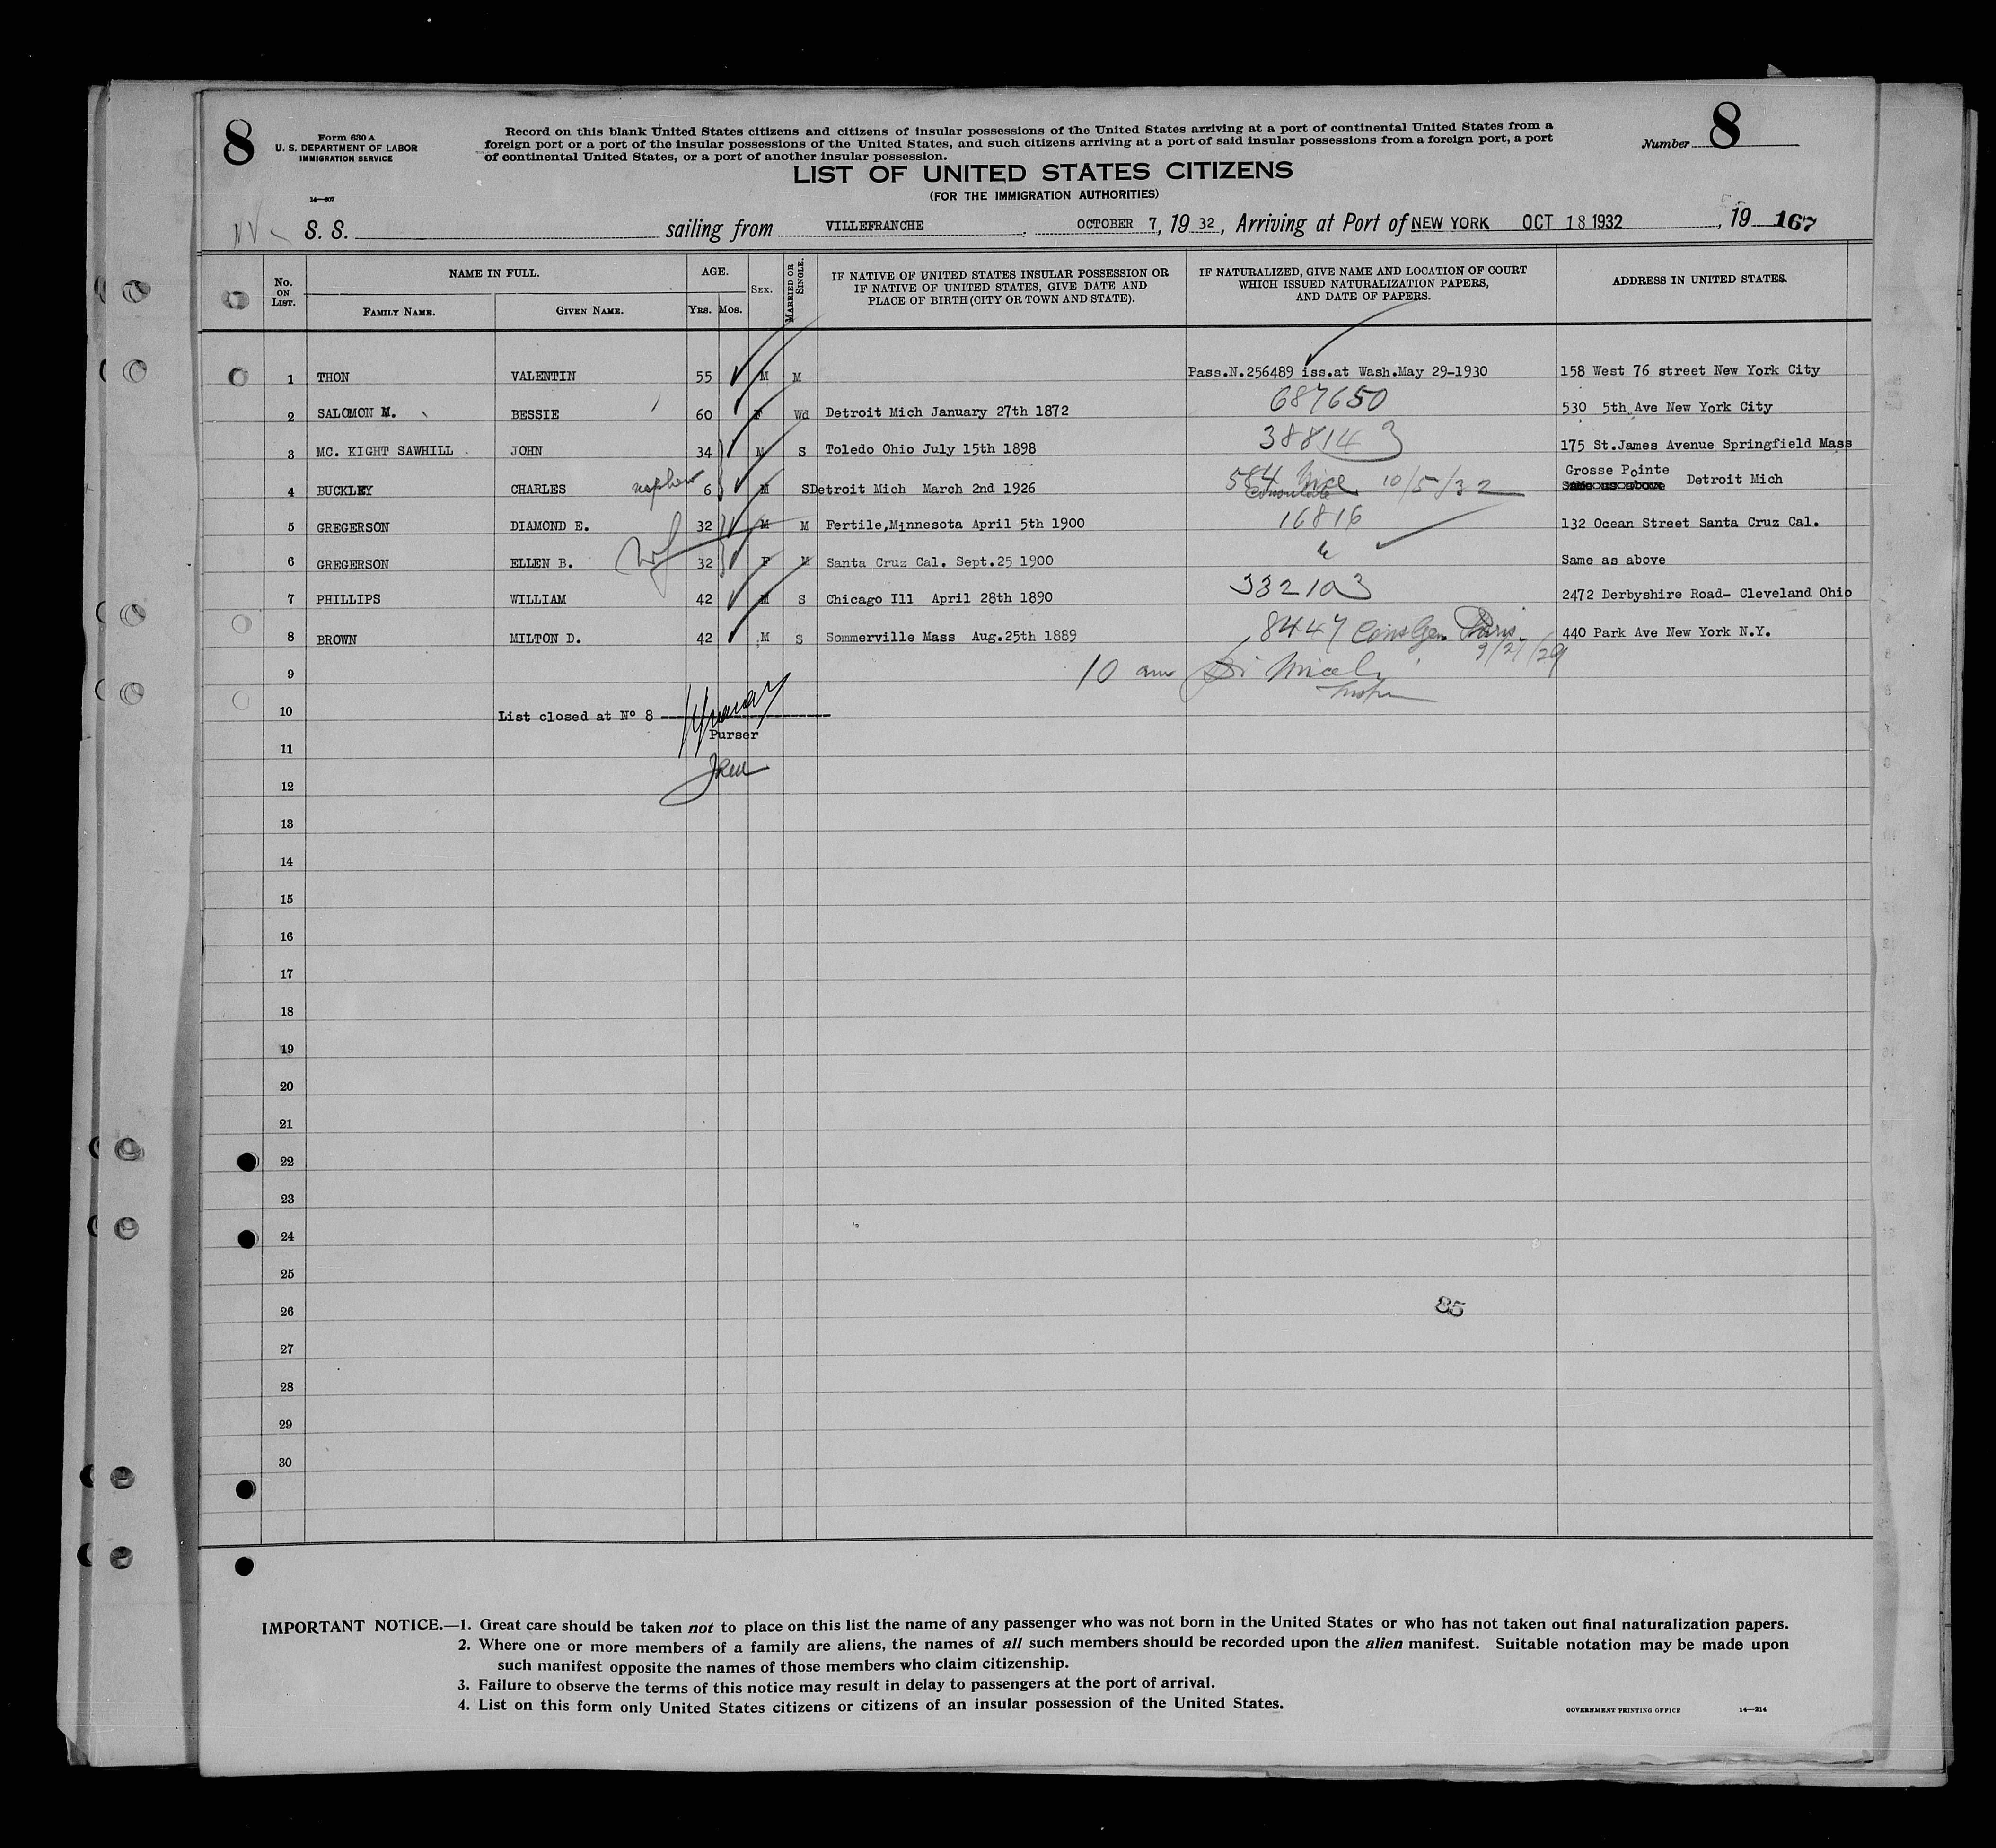 8
Form 630 A
U. S. DEPARTMENT OF LABOR
IMMIGRATION SERVICE
14—607
Record on this blank United States citizens and citizens of insular possessions of the United States arriving at a port of continental United States from a
foreign port or a port of the insular possessions of the United States, and such citizens arriving at a port of said insular possessions from a foreign port, a port
of continental United States, or a port of another insular possession.
Number 8
LIST OF UNITED STATES CITIZENS
(FOR THE IMMIGRATION AUTHORITIES)
S. S. sailing from VILLEFRANCHE, OCTOBER 7, 1932, Arriving at Port of NEW YORK OCT 18 1932, 19 167
No. ON LIST. NAME IN FULL. AGE. SEX. MARRIED OR SINGLE. IF NATIVE OF UNITED STATES INSULAR POSSESSION OR IF NATIVE OF UNITED STATES, GIVE DATE AND PLACE OF BIRTH (CITY OR TOWN AND STATE). IF NATURALIZED, GIVE NAME AND LOCATION OF COURT WHICH ISSUED NATURALIZATION PAPERS, AND DATE OF PAPERS. ADDRESS IN UNITED STATES.
FAMILY NAME. GIVEN NAME. YRS. MOS.
1 THON VALENTIN 55 M M Pass.N.256489 iss.at Wash.May 29-1930 158 West 76 street New York City
2 SALOMON M. BESSIE 60 F Wd Detroit Mich January 27th 1872 687650 530 5th Ave New York City
3 MC. KIGHT SAWHILL JOHN 34 M S Toledo Ohio July 15th 1898 388143 175 St.James Avenue Springfield Mass
4 BUCKLEY CHARLES nephew 6 M S Detroit Mich March 2nd 1926 584 Nice Consulate 10/5/32 Grosse Pointe Same as above Detroit Mich
5 GREGERSON DIAMOND E. 32 M M Fertile,Minnesota April 5th 1900 16816 132 Ocean Street Santa Cruz Cal.
6 GREGERSON ELLEN B. wf 32 F M Santa Cruz Cal. Sept.25 1900 Same as above
7 PHILLIPS WILLIAM 42 M S Chicago Ill April 28th 1890 332103 2472 Derbyshire Road- Cleveland Ohio
8 BROWN MILTON D. 42 M S Sommerville Mass Aug.25th 1889 8447 ConsGen Paris 9/21/29 440 Park Ave New York N.Y.
9 10 am
10 List closed at Nº 8
Purser
11
12
13
14
15
16
17
18
19
20
21
22
23
24
25
26 85
27
28
29
30
IMPORTANT NOTICE.—1. Great care should be taken not to place on this list the name of any passenger who was not born in the United States or who has not taken out final naturalization papers.
2. Where one or more members of a family are aliens, the names of all such members should be recorded upon the alien manifest. Suitable notation may be made upon
such manifest opposite the names of those members who claim citizenship.
3. Failure to observe the terms of this notice may result in delay to passengers at the port of arrival.
4. List on this form only United States citizens or citizens of an insular possession of the United States.
GOVERNMENT PRINTING OFFICE 14—214